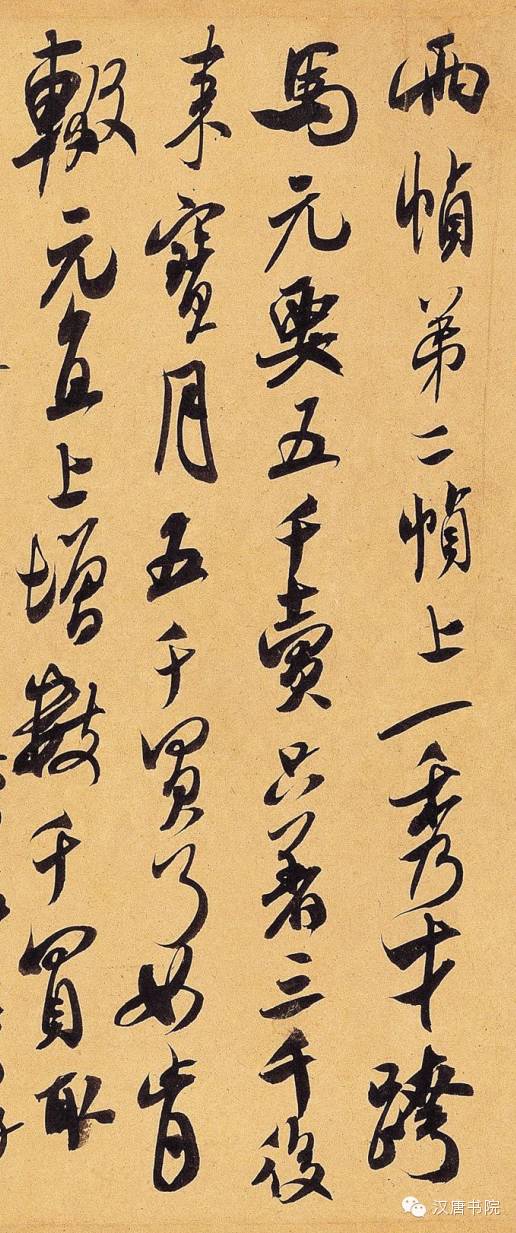 兩幀弟二幀上一秀才跨
馬元要五千賣只著三千後
來寶月五千買了如肯
輟元直上增數千買取
汉唐书院